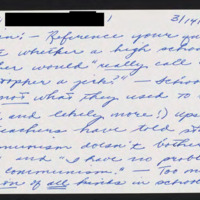 3/14/
:- Reference your
whether a high school
er would "really call
opper a jerk?" - School
not what they used to
and likely more!) Ups
eachers have told st
ommunism doesn't bother
and "I have no prob
communism." - Too m
on of all kinds in school